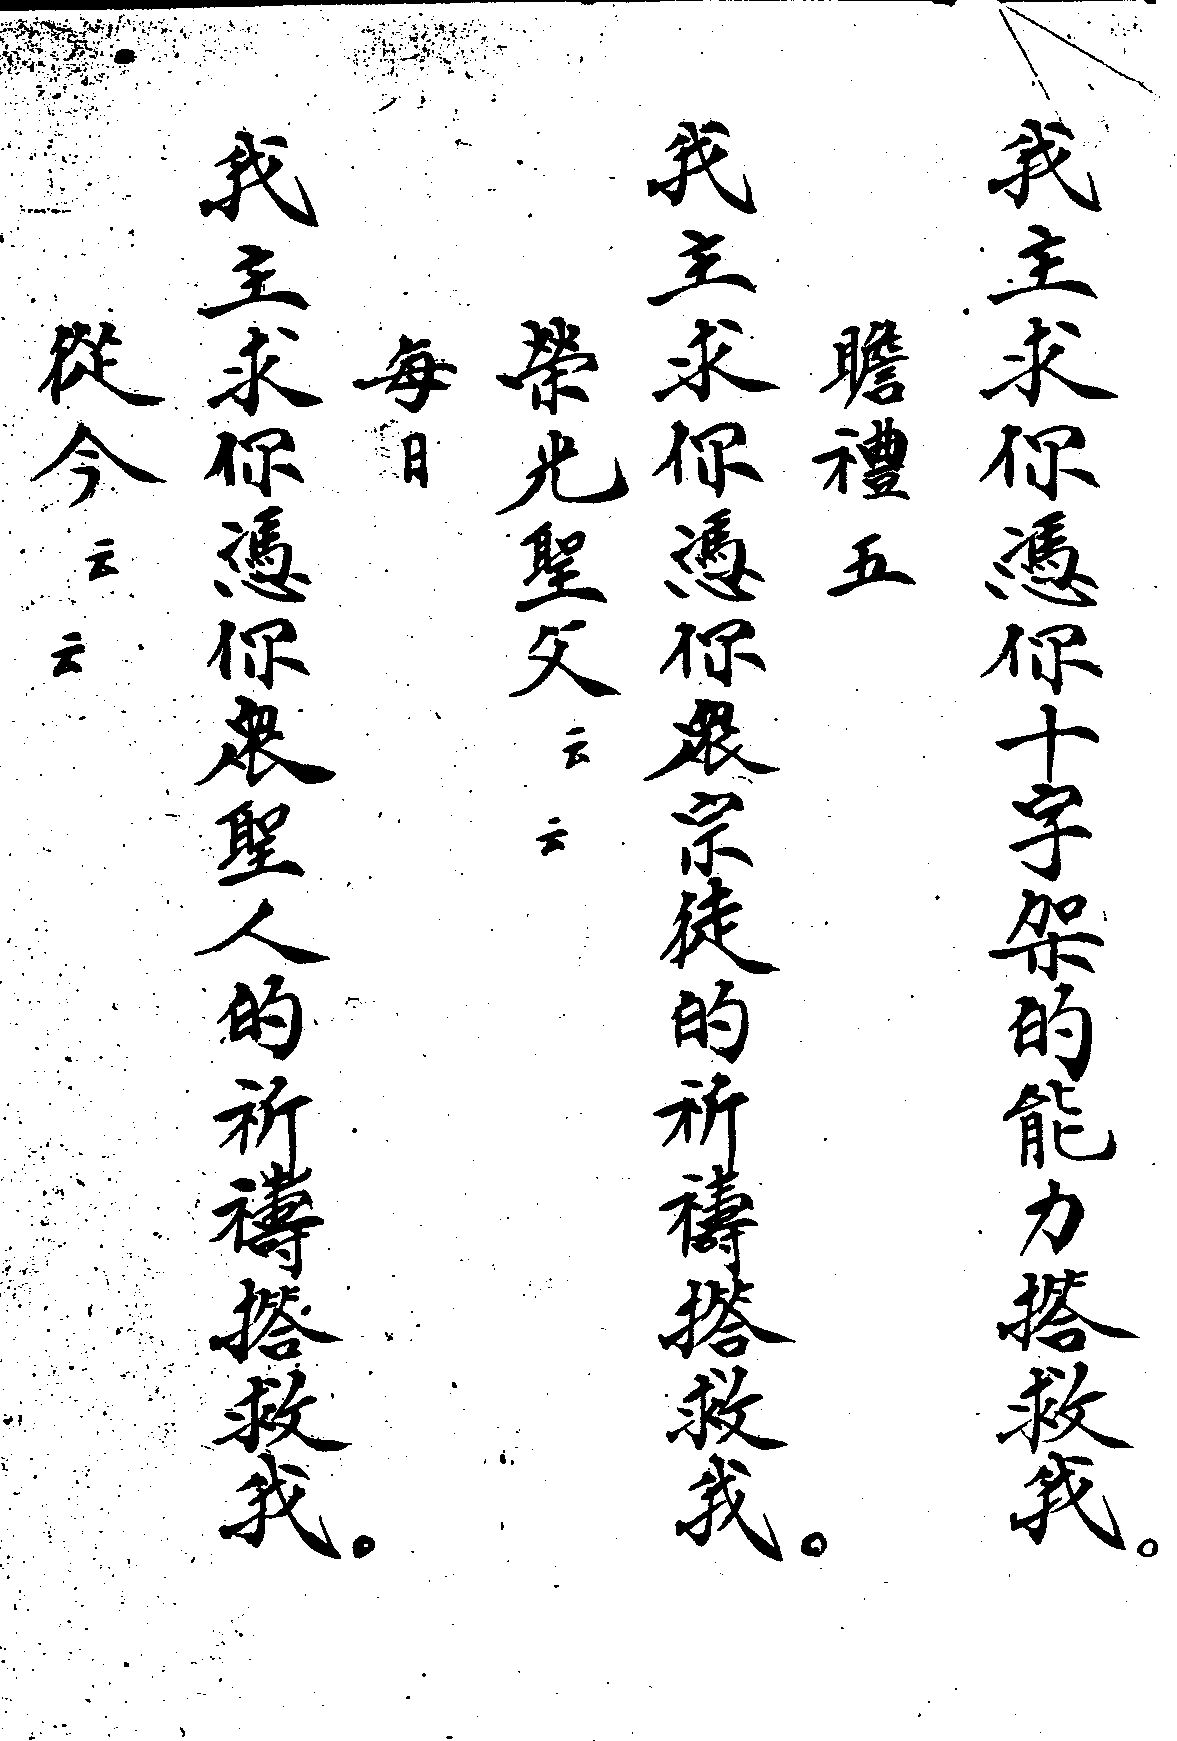 我主求你憑你十字架的能力搭救我。
瞻禮五
我主求你憑你衆宗徒的祈禱搭救我。
榮光聖父云云
每日
我主求你憑你衆聖人的祈禱搭救我。
從今云云